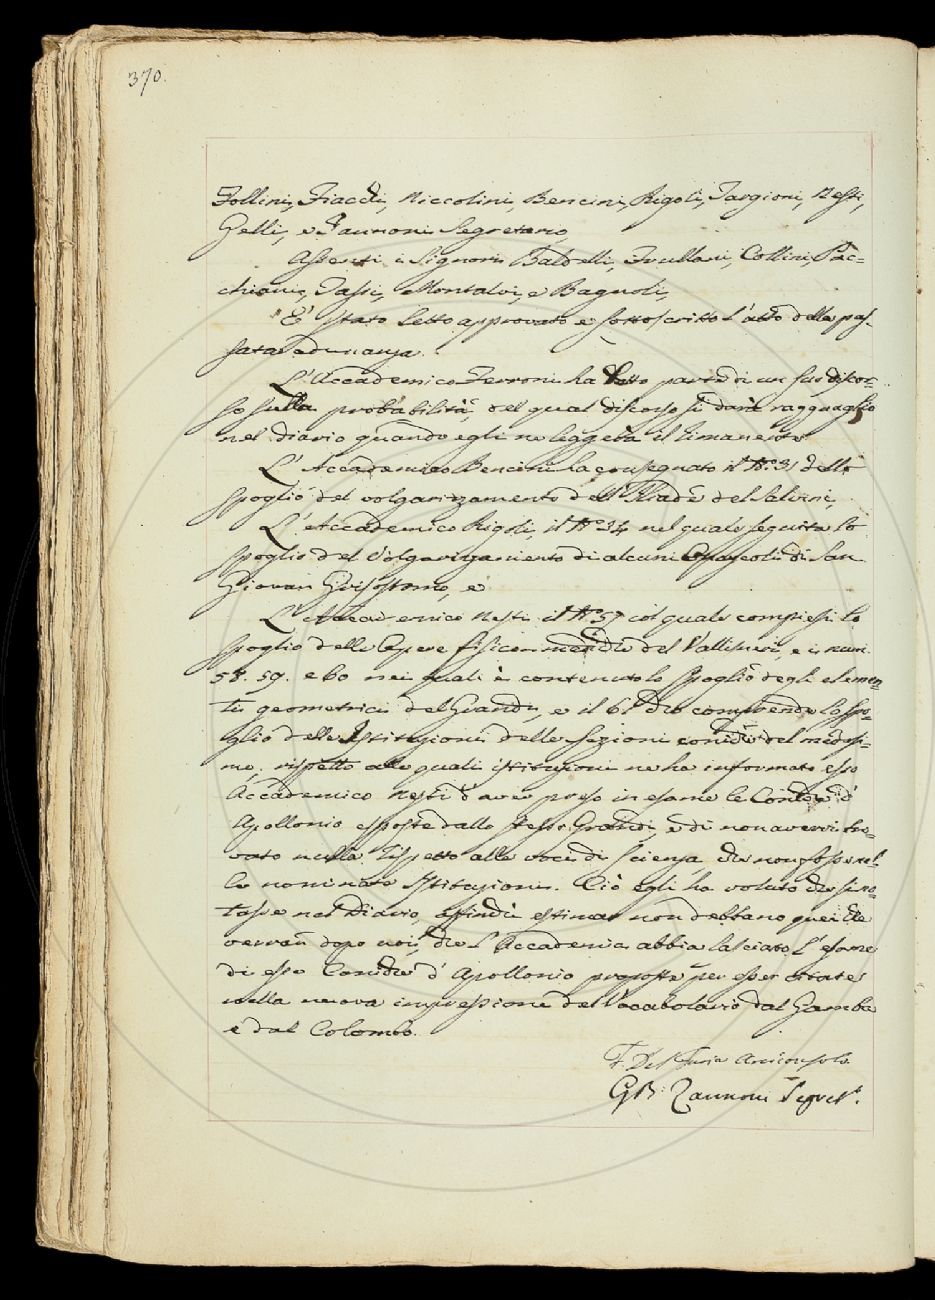 370.
Follini, Fiacchi, Niccolini, Bencini, Rigoli, Targioni, Nesti,
Gelli, e Zannoni Segretario
Assenti i Signori Baldelli, Frullani, Collini, Pac=
chiani, Tassi, Montalvi, e Bagnoli,
E' stato letto approvato e sottoscritto l'atto della pas-
sata adunanza.
L'Accademico Ferroni ha letto parte di un suo discor=
so sulla probabilità, del qual discorso si darà ragguaglio
nel diario quando egli ne leggerà il rimanente
L'Accademico Bencini ha consegnato il N.° 31 dello
spoglio del volgarizzamento dell'Iliade del Salvini,
L'Accademico Rigoli, il N.° 34 nel quale seguita lo
spoglio del Volgarizzamento di alcuni Opuscoli di San
Giovan Grisostomo, e
L'Accademico Nesti il N.° 57 col quale compiesi lo
spoglio delle Opere fisico-mediche del Vallisneri, e i num.
58. 59. e 60 nei quali è contenuto lo spoglio degli elemen=
ti geometrici del Grandi, e il 61 che comprende lo spo=
glio delle Istituzioni delle sezioni coniche del medesi=
mo; rispetto alle quali istituzioni ne ha informato esso
Accademico Nesti d'aver preso in esame le Coniche d'
Apollonio esposte dallo stesso Grandi, e di non avervi tro=
vato nulla, rispetto alle voci di scienza, che non fosse nel=
le nominate Istituzioni. Ciò egli ha voluto che si no=
tasse nel Diario, affinchè estimar non debbano quei che
verran dopo noi, che l'Accademia abbia lasciato l'esame
di esse Coniche d'Apollonio proposte per esser citate
nella nuova impressione del Vocabolario dal Gamba
e dal Colombo.
F. Del Furia Arciconsolo
GB. Zannoni Segret.°